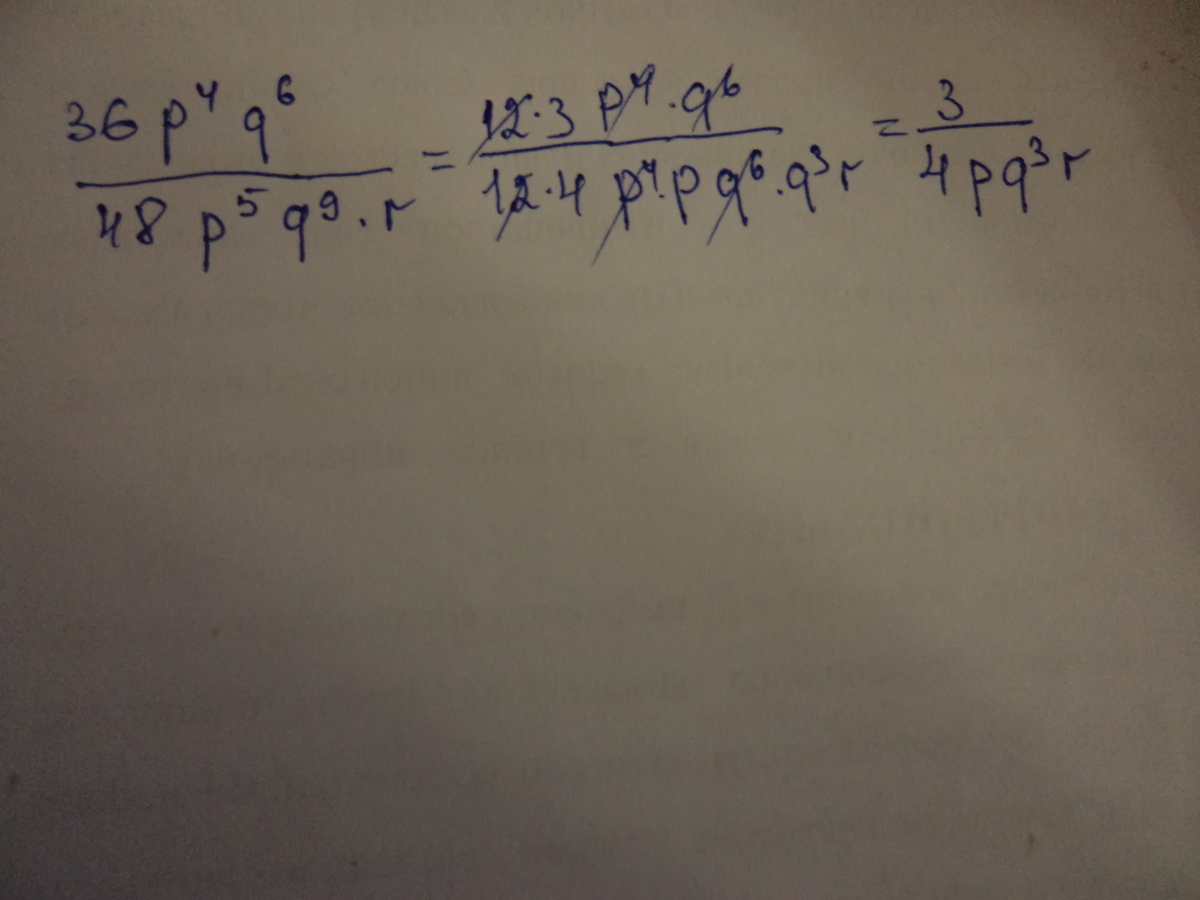 36 p⁴ q⁶ / 48 p⁵ q⁹ · r = 12·3 p⁴ · q⁶ / 12·4 p⁴·p q⁶·q³ r = 3 / 4 p q³ r